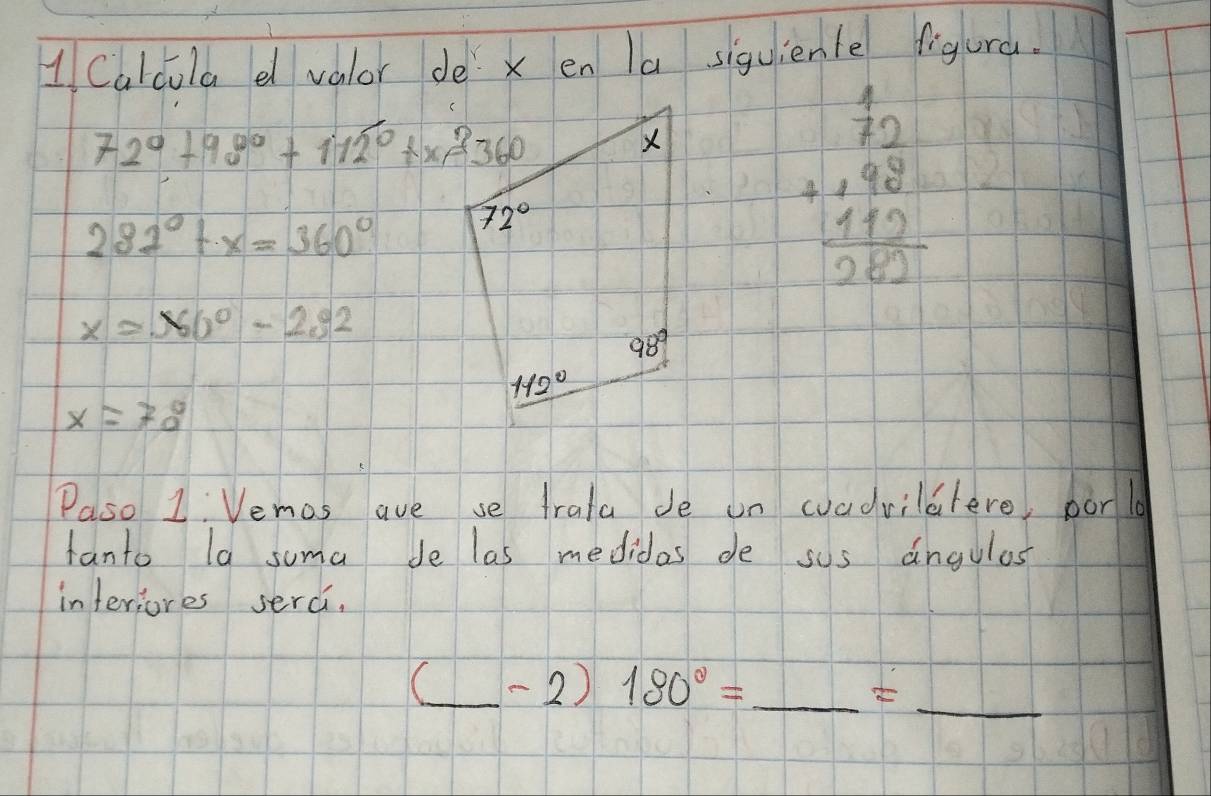 1. Calcula el valor de x en la siguiente figura.
72° + 98° + 112° + x = 360
282° + x = 360°
x = 360° - 282
x = 78
x
72°
98°
112°
1
72
+ 98
112
282
Paso 1: Vemos que se trata de un cuadrilátero, por lo
tanto la suma de las medidas de sus ángulos
interiores será.
(___ - 2) 180° = ____ = ____